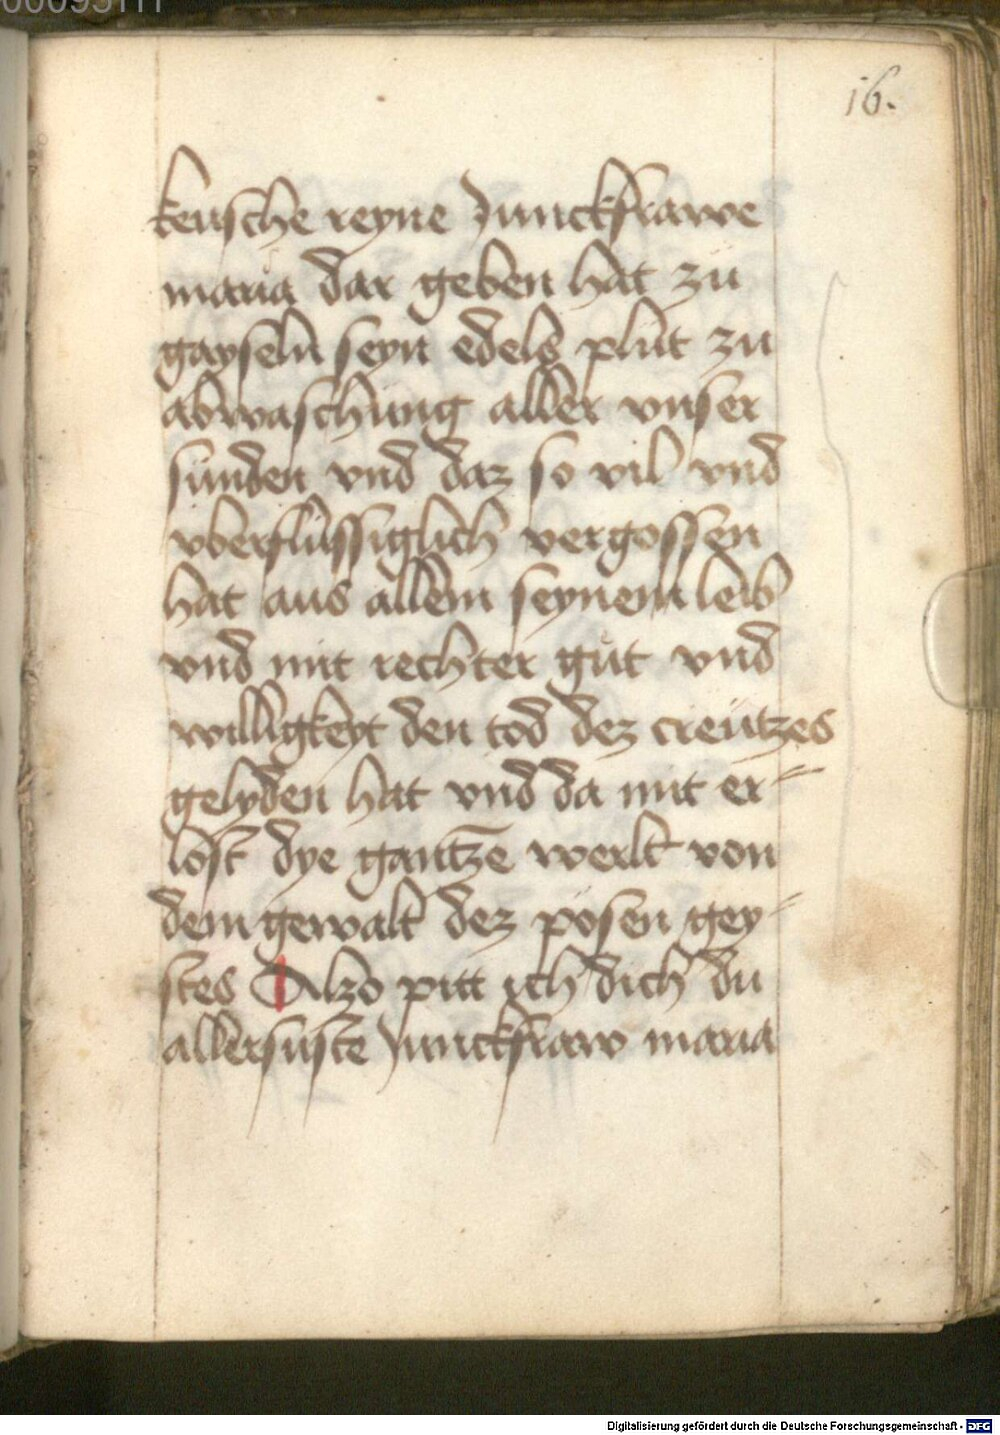 16.
keusche reyne Junckfrawe
maria dar geben hat zu
gayseln seyn edels plut zu
abwaschung aller vnser
sunden vnd daz so vil vnd
vberflussiglich vergossen
hat aus allem seynem leib
vnd mit rechter gut vnd
willigkeyt den tod dez creutzes
gelyden hat vnd da mit er-
lost dye gantze werlt von
dem gewalt dez posen gey-
stes Alzo pitt ich dich du
allersuste Junckfraw maria
Digitalisierung gefördert durch die Deutsche Forschungsgemeinschaft - DFG